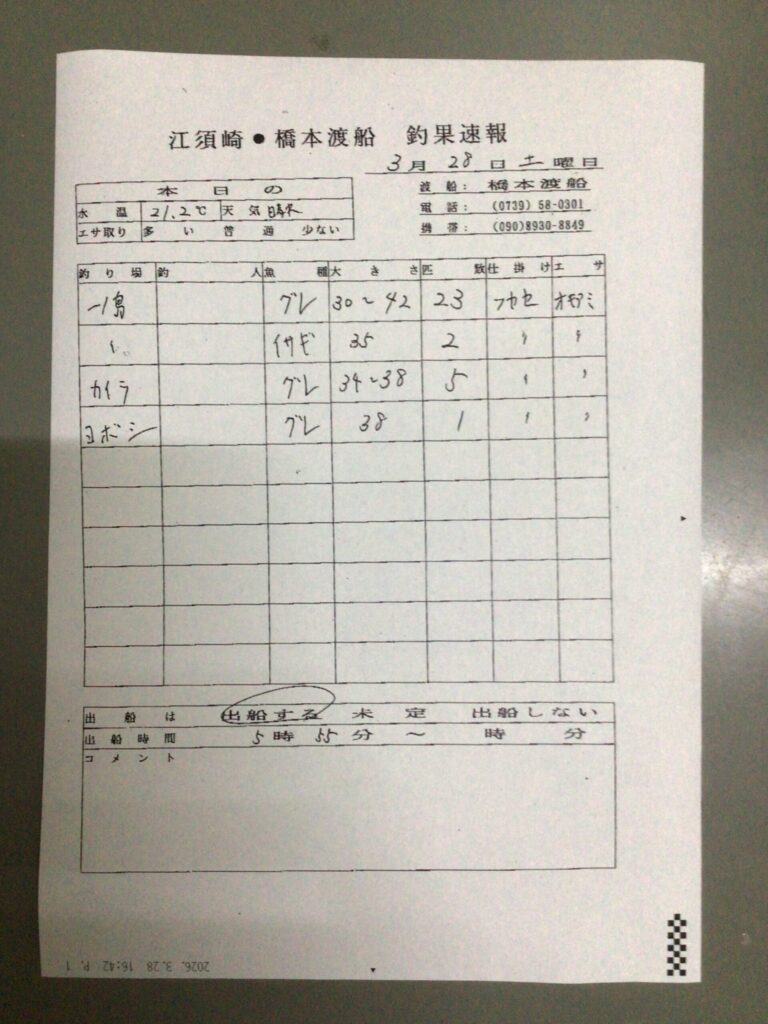 江須崎●橋本渡船 釣果速報
3月 28 日 土 曜日
渡船: 橋本渡船
電話: (0739) 58-0301
携帯: (090)8930-8849
本日の
水温 21.2℃ 天気 晴
エサ取り 多い 普通 少ない
釣り場 釣人 魚種 大きさ 匹数 仕掛け エサ
一島 グレ 30~42 23 フカセ オキアミ
〃 イサギ 35 2 〃 〃
カイラ グレ 34~38 5 〃 〃
ヨボシ グレ 38 1 〃 〃
出船は 出船する 未定 出船しない
出船時間 5時 55分 ~ 時 分
コメント
2026. 3.28 16:42 P. 1